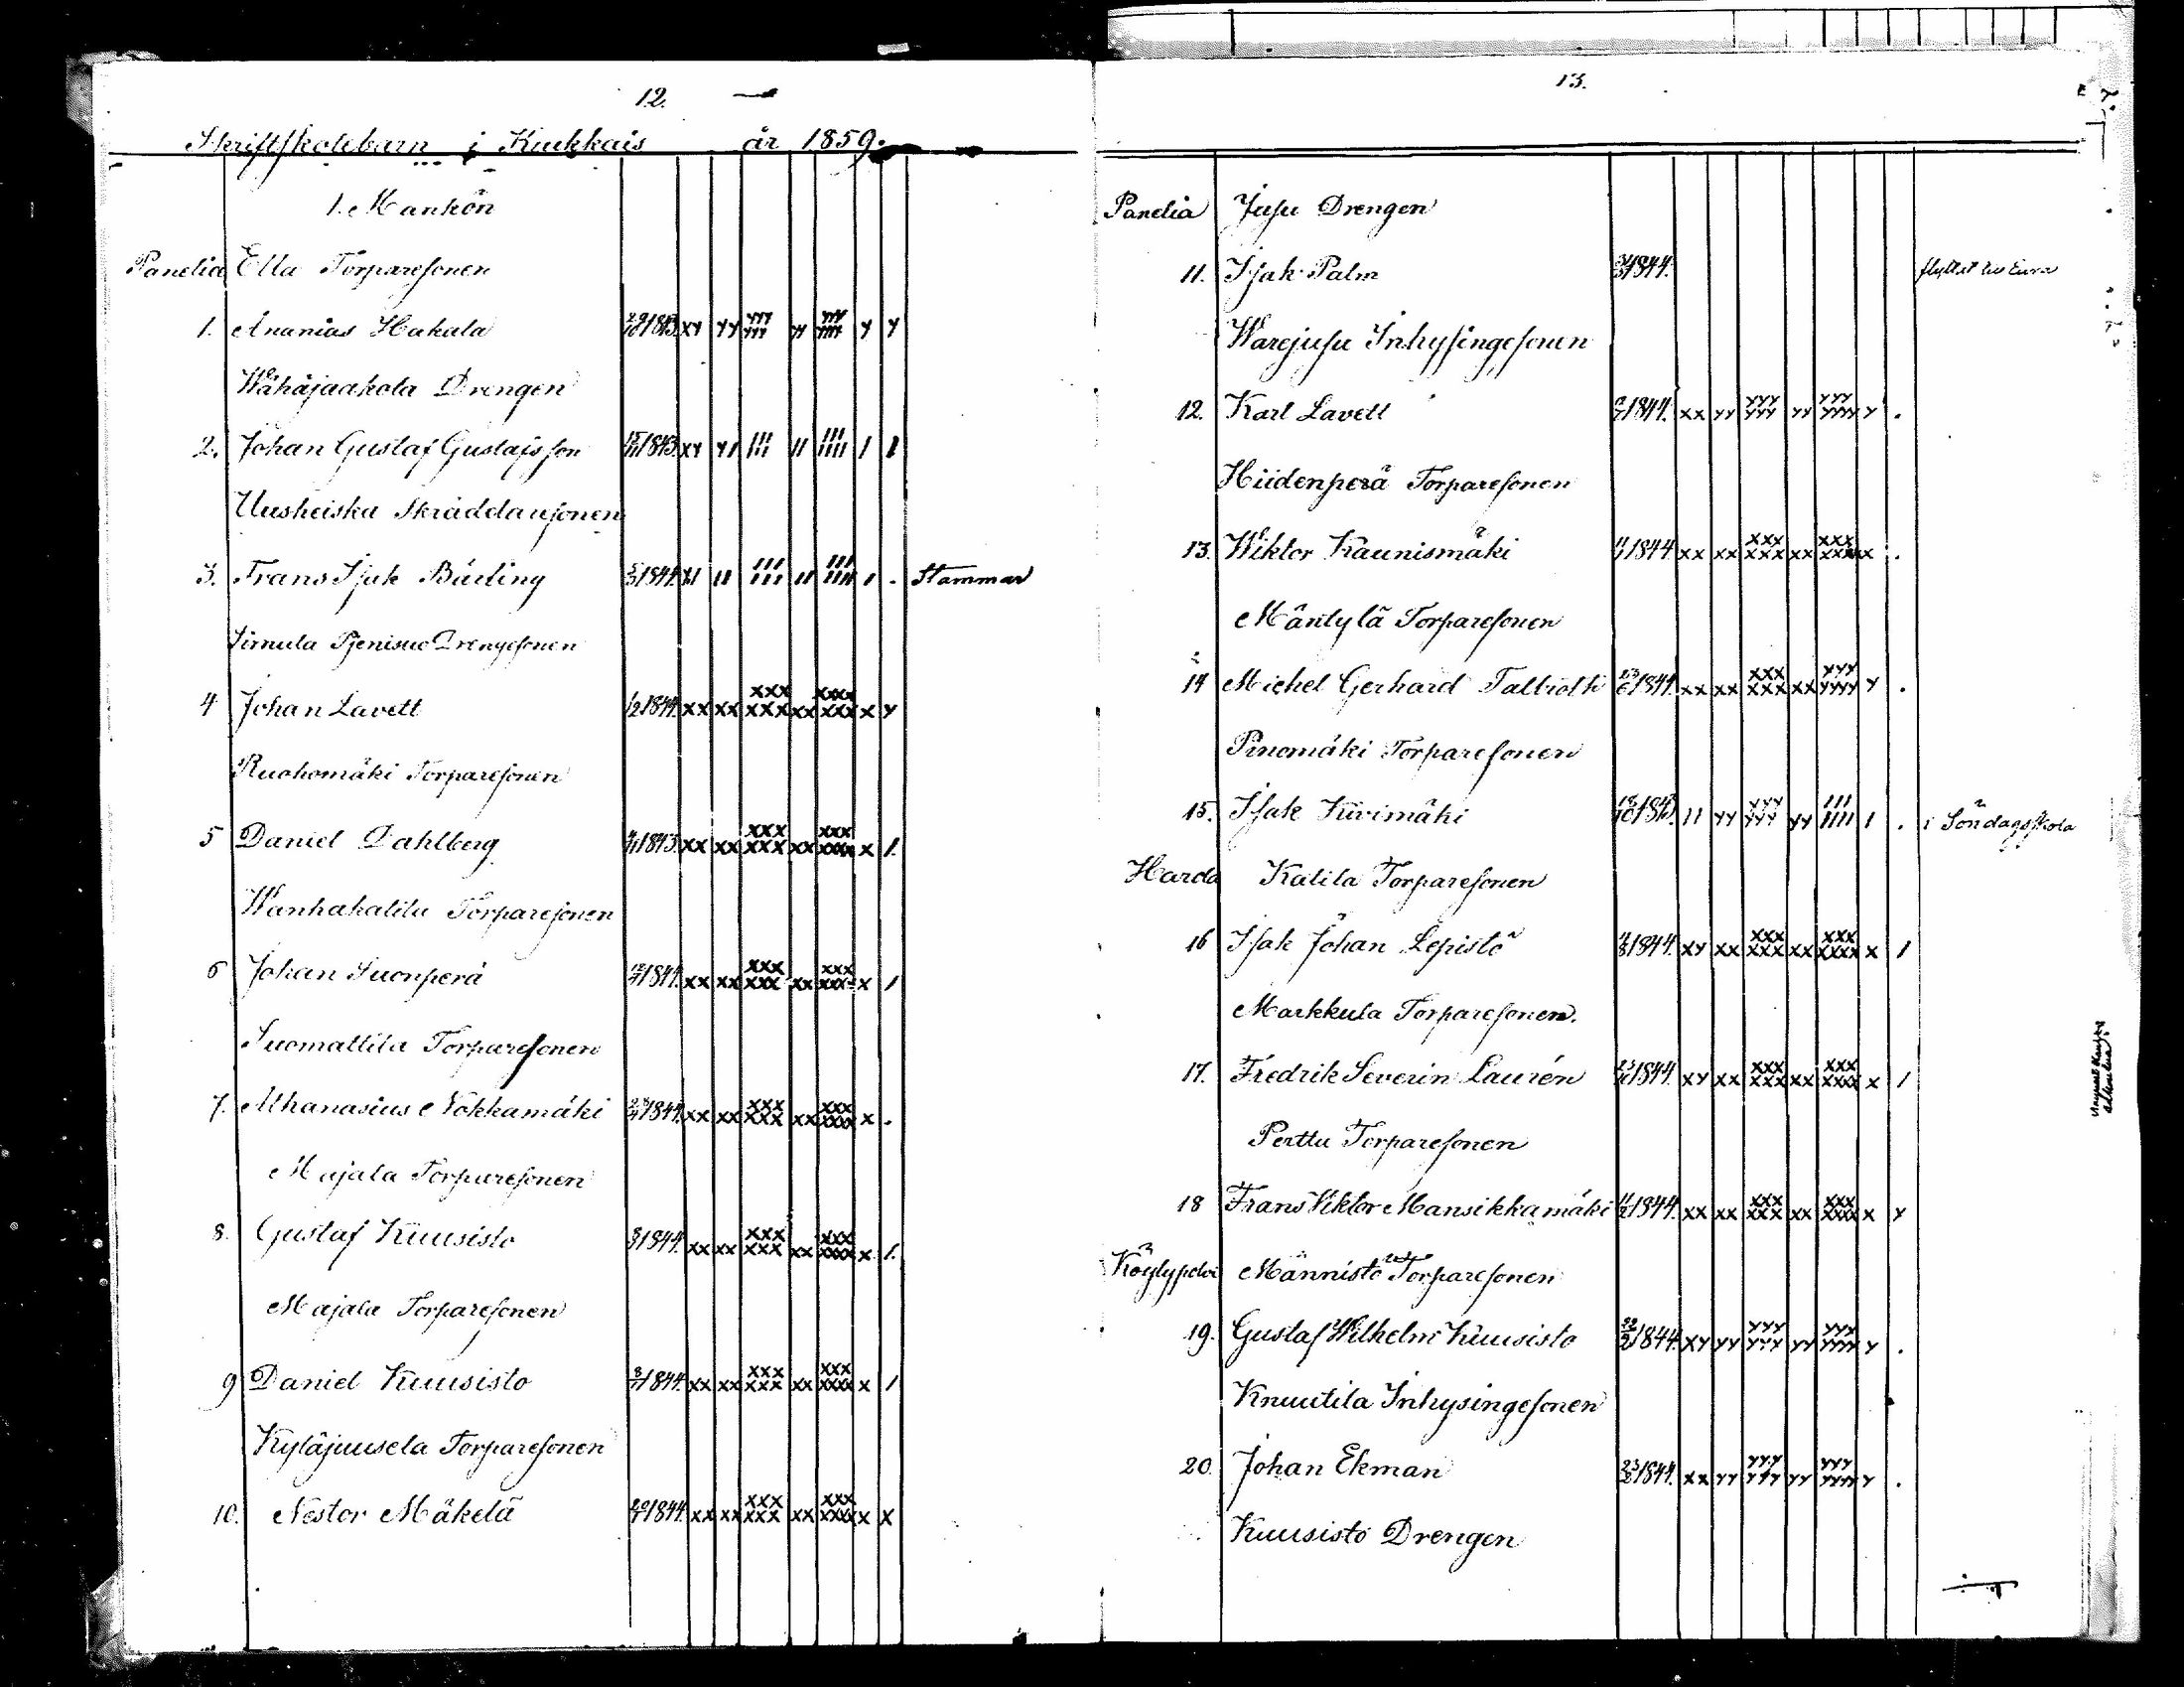 12.
Skriftskolebarn i Kiukkais år 1859.
1. Mankön
Panelia Ella Torparesonen
1. Ananias Hakala 1843. xy yy yyy yyy yy yyy yyyy y y
Wähäjaakola Drengen
2. Johan Gustaf Gustafsson 1843. xy y1 111 111 11 111 1111 1 1
Uusheiska Skräddaresonen
3. Frans Isak Bärling 1844. 11 111 111 11 111 1111 1 . Stammar
Sirnula Drengesonen
4 Johan Lavett 1/2 1844. xx xx xxx xxx xx xxx xxx x y
Ruohomäki Torparesonen
5 Daniel Dahlberg 1843. xx xx xxx xxx xx xxx xxxx x 1.
Wanhakatila Torparesonen
6 Johan Suonperä 1844. xx xx xxx xxx xx xxx xxx x 1
Suomattila Torparesonen
7. Athanasius Nokkamäki 1844. xx xx xxx xxx xx xxx xxxx x .
Majala Torparesonen
8. Gustaf Kuusisto 1844. xx xx xxx xxx xx xxx xxxx x 1.
Majala Torparesonen
9 Daniel Kuusisto 1844. xx xx xxx xxx xx xxx xxxx x 1
Kyläjuusela Torparesonen
10. Nestor Mäkelä 1844. xx xx xxx xxx xx xxx xxxx x x
13.
Panelia Jusu Drengen
11. Isak Palm 1844. flyttat till Eura
Warejusu Inhysingesonen
12. Karl Lavett 1844. xx yy yyy yyy yy yyy yyyy y .
Hiidenperä Torparesonen
13. Wiktor Kaunismäki 1844 xx xx xxx xxx xx xxx xxxx x .
Mäntylä Torparesonen
14 Michel Gerhard Tallroth 1844. xx xx xxx xxx xx yyy yyyy y .
Pinomäki Torparesonen
15. Isak Kivimäki 1843. 11 yy yyy yyy yy 111 1111 1 . i Söndagsskola
Harola Katila Torparesonen
16 Isak Johan Lepistö 1844. xy xx xxx xxx xx xxx xxxx x 1
Markkula Torparesonen.
17. Fredrik Severin Laurén 1844. xy xx xxx xxx xx xxx xxxx x 1
Perttu Torparesonen
18 Frans Viktor Mansikkamäki 1844. xx xx xxx xxx xx xxx xxxx x x
Köylypolvi Männistö Torparesonen
19. Gustaf Wilhelm Kuusisto 22/2 1844. xy yy yyy yyy yy yyy yyyy y .
Knuutila Inhysingesonen
20. Johan Ekman 1844. xx yy yyy yyy yy yyy yyyy y .
Kuusisto Drengen